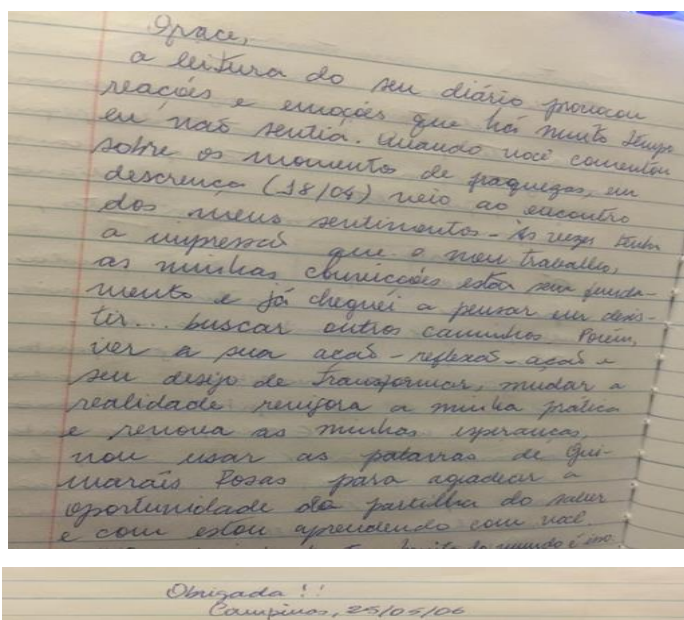 Grace,
a leitura do seu diário provocou
reações e emoções que há muito tempo
eu não sentia. Quando você comentou
sobre os momentos de fraquezas, em
descrença (18/04) veio ao encontro
dos meus sentimentos - Às vezes tenho
a impressão que o meu trabalho,
as minhas convicções estão sem funda-
mento e já cheguei a pensar em desis-
tir... buscar outros caminhos. Porém,
ver a sua ação-reflexão-ação e
seu desejo de transformar, mudar a
realidade revigora a minha prática
e renova as minhas esperanças.
Vou usar as palavras de Gui-
marães Rosas para agradecer a
oportunidade da partilha do saber
e com estou aprendendo com você.
do mundo é isso
Obrigada !!
Campinas, 25/05/06